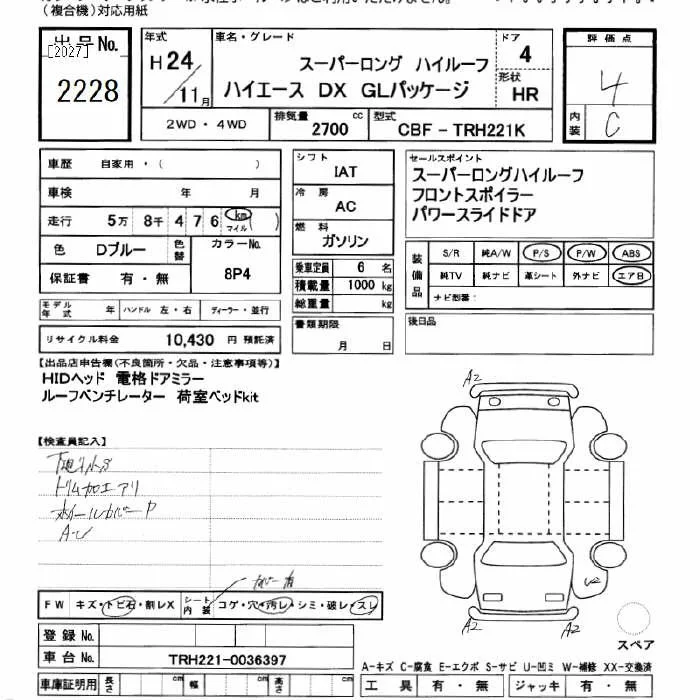 (複合機)対応用紙
出品No.
[2027]
2228
年式 車名・グレード ドア 評価点
H24/11月 スーパーロング ハイルーフ 4 4
ハイエース DX GLパッケージ 形状 HR 内装 C
2WD・4WD 排気量 2700 cc 型式 CBF-TRH221K
車歴 自家用・( )
車検 年 月
走行 5万 8千 4 7 6 km マイル ( )
色 Dブルー 色替 カラーNo.
保証書 有・無 8P4
シフト IAT
冷房 AC
燃料 ガソリン
乗車定員 6 名
積載量 1000 kg
総重量 kg
セールスポイント
スーパーロングハイルーフ
フロントスポイラー
パワースライドドア
装備品 S/R 純A/W P/S P/W ABS
純TV 純ナビ 革シート 外ナビ エアB
ナビ型番:
モデル年式 年 ハンドル 左・右 ディーラー・並行
書類期限 月 日
後日品
リサイクル料金 10,430 円 預託済
【出品店申告欄(不良箇所・欠品・注意事項等)】
HIDヘッド 電格ドアミラー
ルーフベンチレーター 荷室ベッドkit
【検査員記入】
トリム加工アリ
ホイールカバーP
A-U
A2
A2
A2
FW キズ・トビ石・割レX シート内装 コゲ・穴・汚レ・シミ・破レ・スレ
登録No.
車台No. TRH221-0036397
スペア
A-キズ C-腐食 E-エクボ S-サビ U-凹ミ W-補修 XX-交換済
車庫証明用 長さ cm 幅 cm 高さ cm
工具 有・無 ジャッキ 有・無